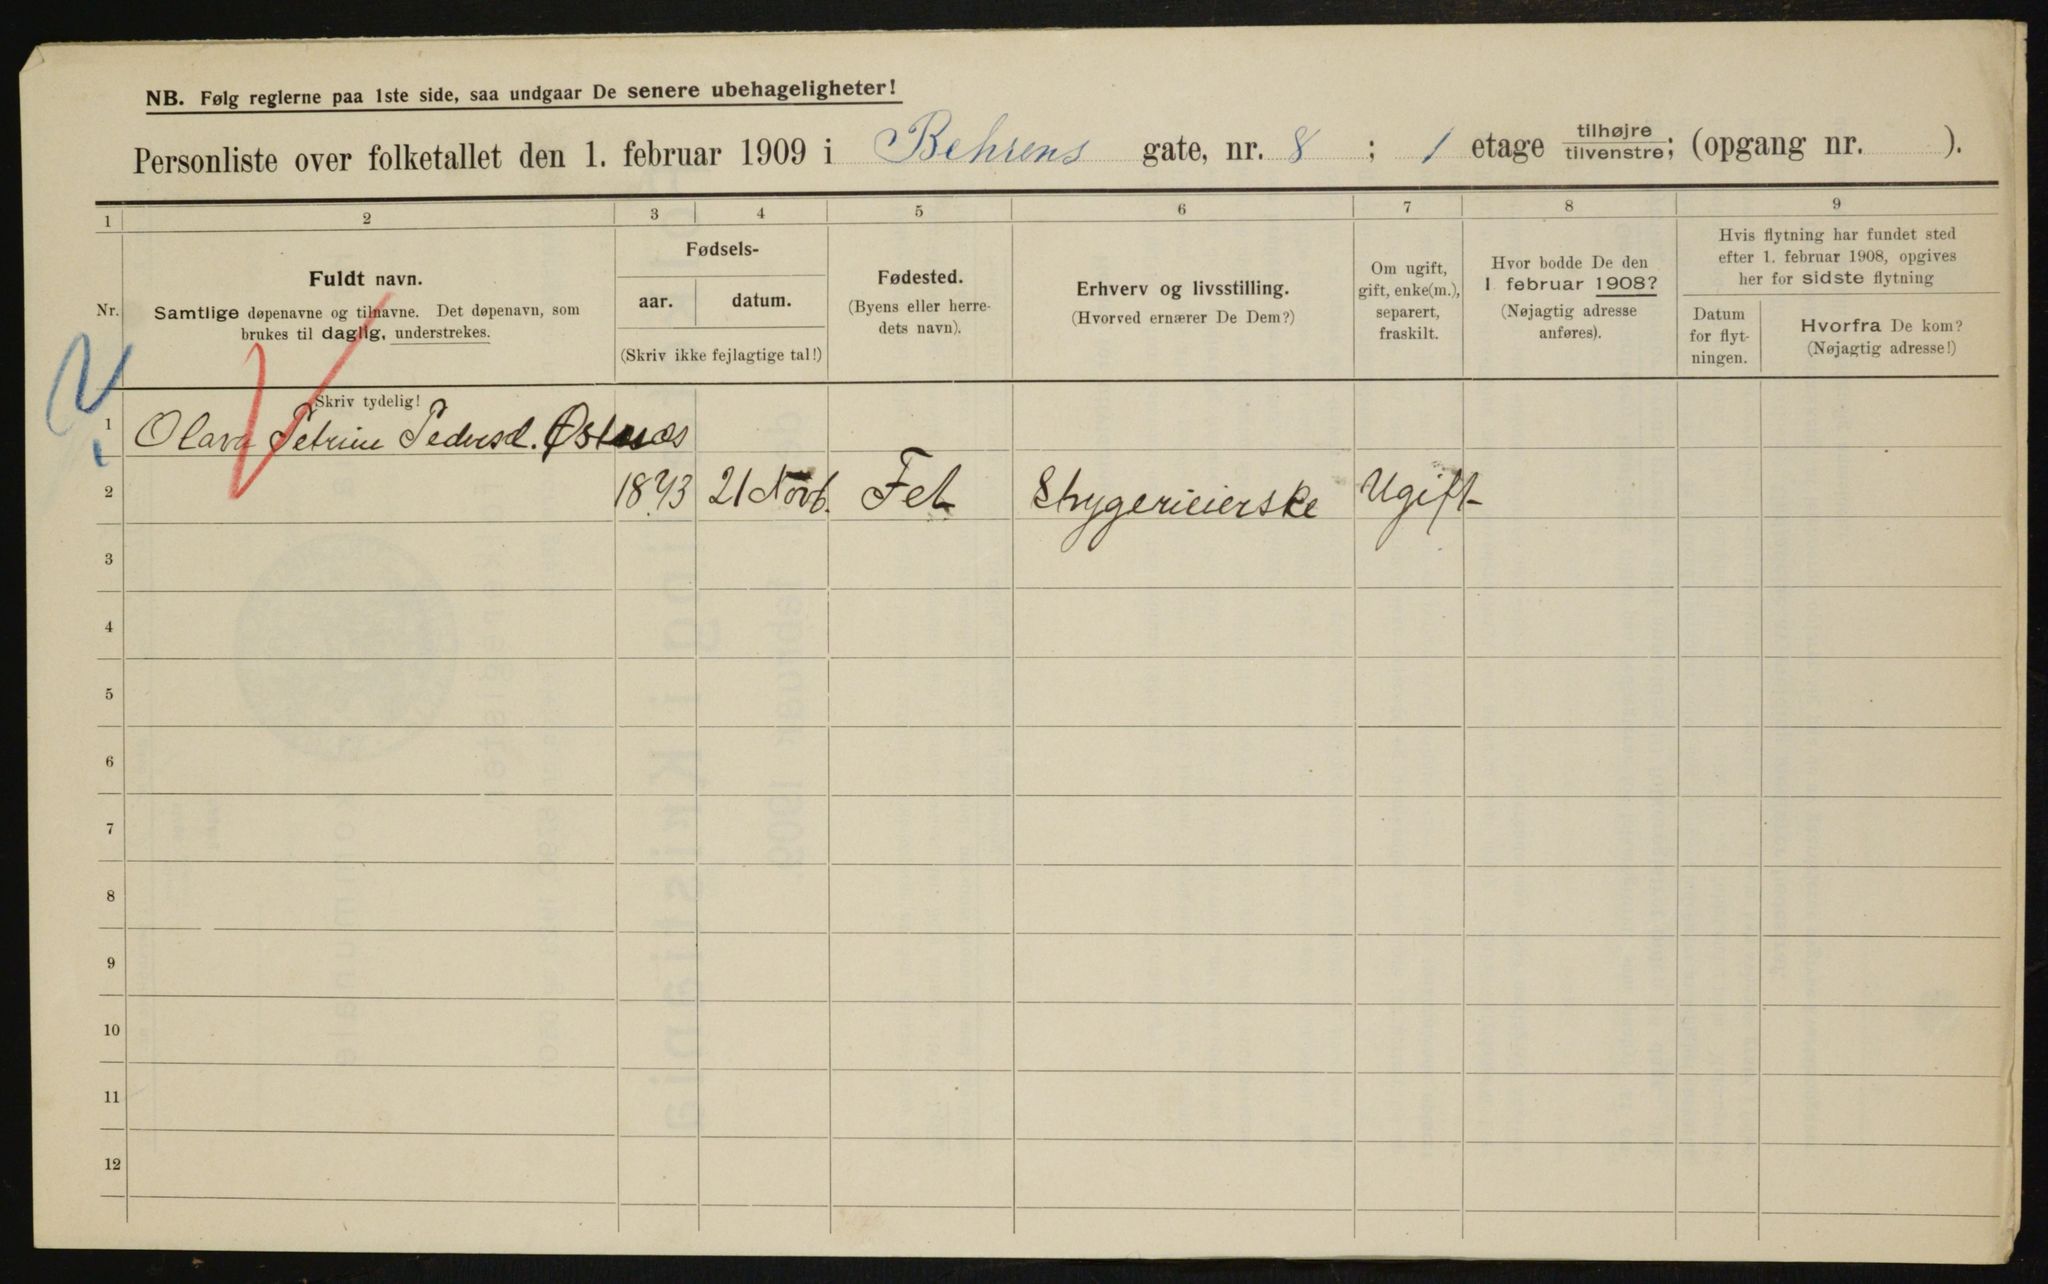 NB. Følg reglerne paa 1ste side, saa undgaar De senere ubehageligheter!
Personliste over folketallet den 1. februar 1909 i Behrens gate, nr. 8 ; 1 etage tilhøjre/tilvenstre; (opgang nr. ).
1 2 3 4 5 6 7 8 9
Nr.
Fuldt navn.
Samtlige døpenavne og tilnavne. Det døpenavn, som
brukes til daglig, understrekes.
Fødsels-
aar. datum.
(Skriv ikke fejlagtige tal!)
Fødested.
(Byens eller herre-
dets navn).
Erhverv og livsstilling.
(Hvorved ernærer De Dem?)
Om ugift,
gift, enke(m.),
separert,
fraskilt.
Hvor bodde De den
1 februar 1908?
(Nøjagtig adresse
anføres).
Hvis flytning har fundet sted
efter 1. februar 1908, opgives
her for sidste flytning
Datum
for flyt-
ningen.
Hvorfra De kom?
(Nøjagtig adresse!)
Skriv tydelig!
1 Olava Petrine Pedersd. Østnæs
2 1873 21 Novb. Fet Strygerieierske Ugift
3
4
5
6
7
8
9
10
11
12